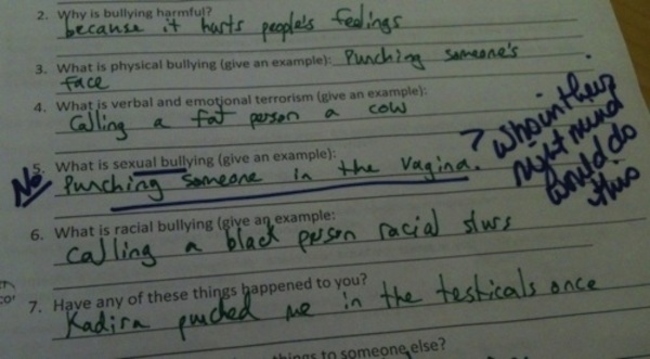 2. Why is bullying harmful?
because it hurts people's feelings
3. What is physical bullying (give an example): Punching someone's
face
4. What is verbal and emotional terrorism (give an example):
Calling a fat person a cow
5. What is sexual bullying (give an example):
No Punching someone in the vagina. ? Who in their
right mind
would do
this
6. What is racial bullying (give an example:
calling a black person racial slurs
7. Have any of these things happened to you?
Kadira punched me in the testicals once
things to someone else?